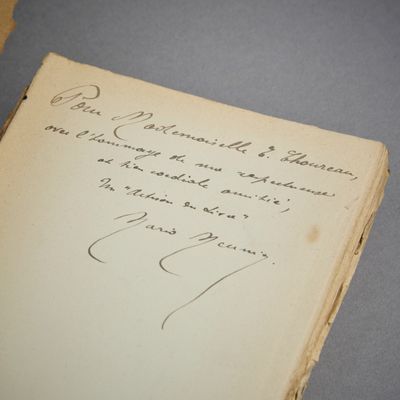 Pour Mademoiselle E. Thoureau,
avec l'hommage de ma respectueuse
et bien cordiale amitié,
Un
Mario Meunier.